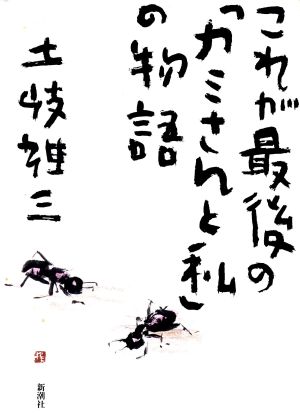 これが最後の
「カミさんと私」
の物語
土岐雄三
新潮社